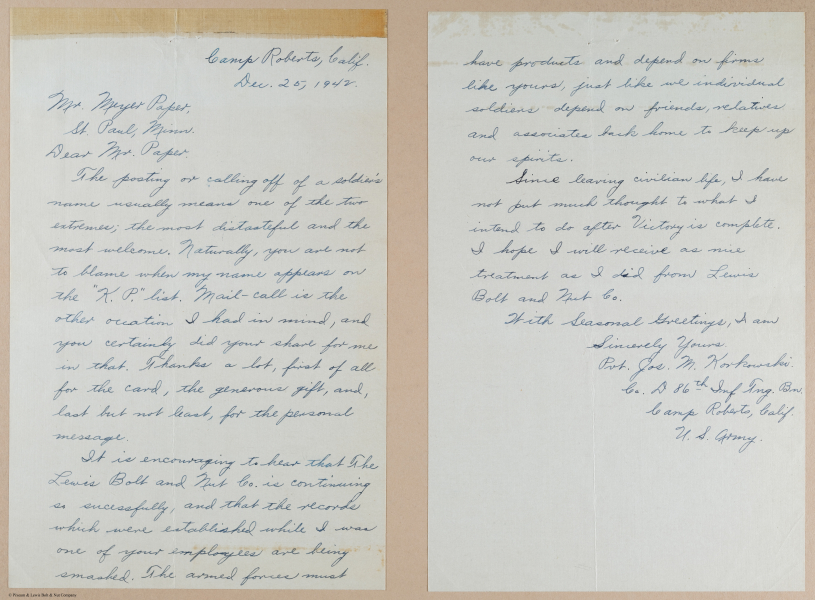 Camp Roberts, Calif.
Dec. 25, 1942
Mr. Meyer Paper,
St. Paul, Minn.
Dear Mr. Paper.
The posting or calling off of a soldier's
name usually means one of the two
extremes; the most distasteful and the
most welcome. Naturally, you are not
to blame when my name appears on
the "K. P." list. Mail-call is the
other occation I had in mind, and
you certainly did your share for me
in that. Thanks a lot, first of all
for the card, the generous gift, and,
last but not least, for the personal
message.
It is encouraging to hear that The
Lewis Bolt and Nut Co. is continuing
so sucessfully, and that the records
which were established while I was
one of your employees are being
smashed. The armed forces must
have products and depend on firms
like yours, just like we individual
soldiers depend on friends, relatives
and associates back home to keep up
our spirits.
Since leaving civilian life, I have
not put much thought to what I
intend to do after Victory is complete.
I hope I will receive as nice
treatment as I did from Lewis
Bolt and Nut Co.
With Seasonal Greetings, I am
Sincerely Yours.
Pvt. Jos. M. Korkowski.
Co. D 86th Inf Tng. Bn.
Camp Roberts, Calif.
U. S. Army.